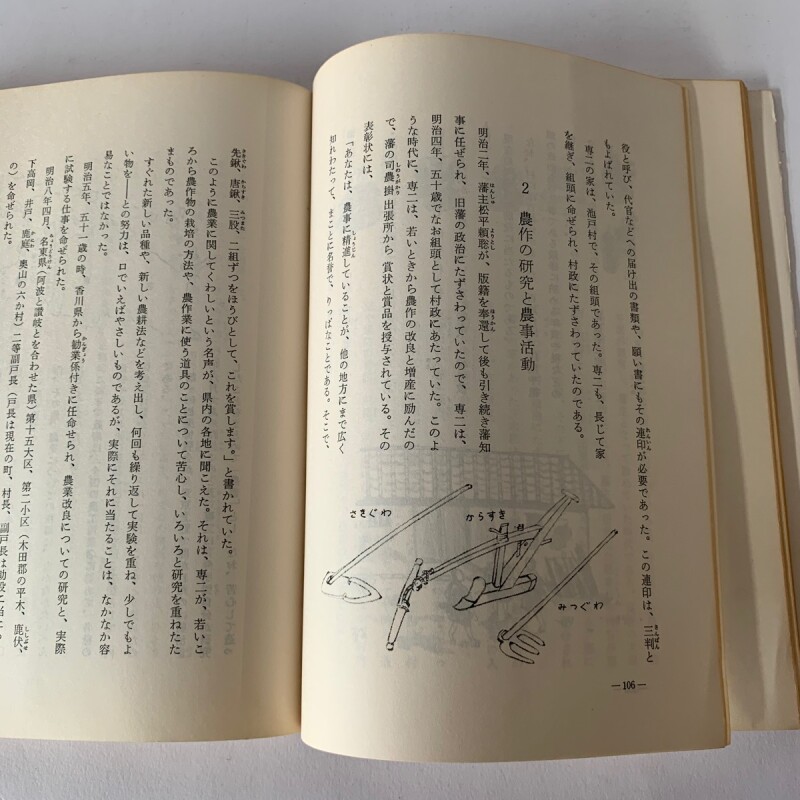 役と呼び、代官などへの届け出の書類や、願い書にもその連印が必要であった。この連印は、三判と
もよばれていた。
専二の家は、池戸村で、その組頭であった。専二も、長じて家
を継ぎ、組頭に命ぜられ、村政にたずさわっていたのである。
2 農作の研究と農事活動
明治二年、藩主松平頼聡が、版籍を奉還して後も引き続き藩知
事に任ぜられ、旧藩の政治にたずさわっていたので、専二は、
明治四年、五十歳でなお組頭として村政にあたっていた。このよ
うな時代に、専二は、若いときから農作の改良と増産に励んだの
で、藩の司農掛出張所から賞状と賞品を授与されている。その
表彰状には、
「あなたは、農事に精進していることが、他の地方にまで広く
知れわたって、まことに名誉で、りっぱなことである。そこで、
さきぐわ
からすき
みつぐわ
—106—
先鍬、唐鍬、三股、二組ずつをほうびとして、これを賞します。」と書かれていた。
このように農業に関してくわしいという名声が、県内の各地に聞こえた。それは、専二が、若いこ
ろから農作物の栽培の方法や、農作業に使う道具のことについて苦心し、いろいろと研究を重ねたた
まものであった。
すぐれた新しい品種や、新しい農耕法などを考え出し、何回も繰り返して実験を重ね、少しでもよ
い物を——との努力は、口でいえばやさしいものであるが、実際にそれに当たることは、なかなか容
易なことではなかった。
明治五年、五十一歳の時、香川県から勧業係付きに任命せられ、農業改良についての研究と、実際
に試験する仕事を命ぜられた。
明治八年四月、名東県(阿波と讃岐とを合わせた県)第十五大区、第二小区(木田郡の平木、鹿伏、
下高岡、井戸、鹿庭、奥山の六か村)二等副戸長(戸長は現在の町、村長、副戸長は助役に当た
の)を命ぜられた。